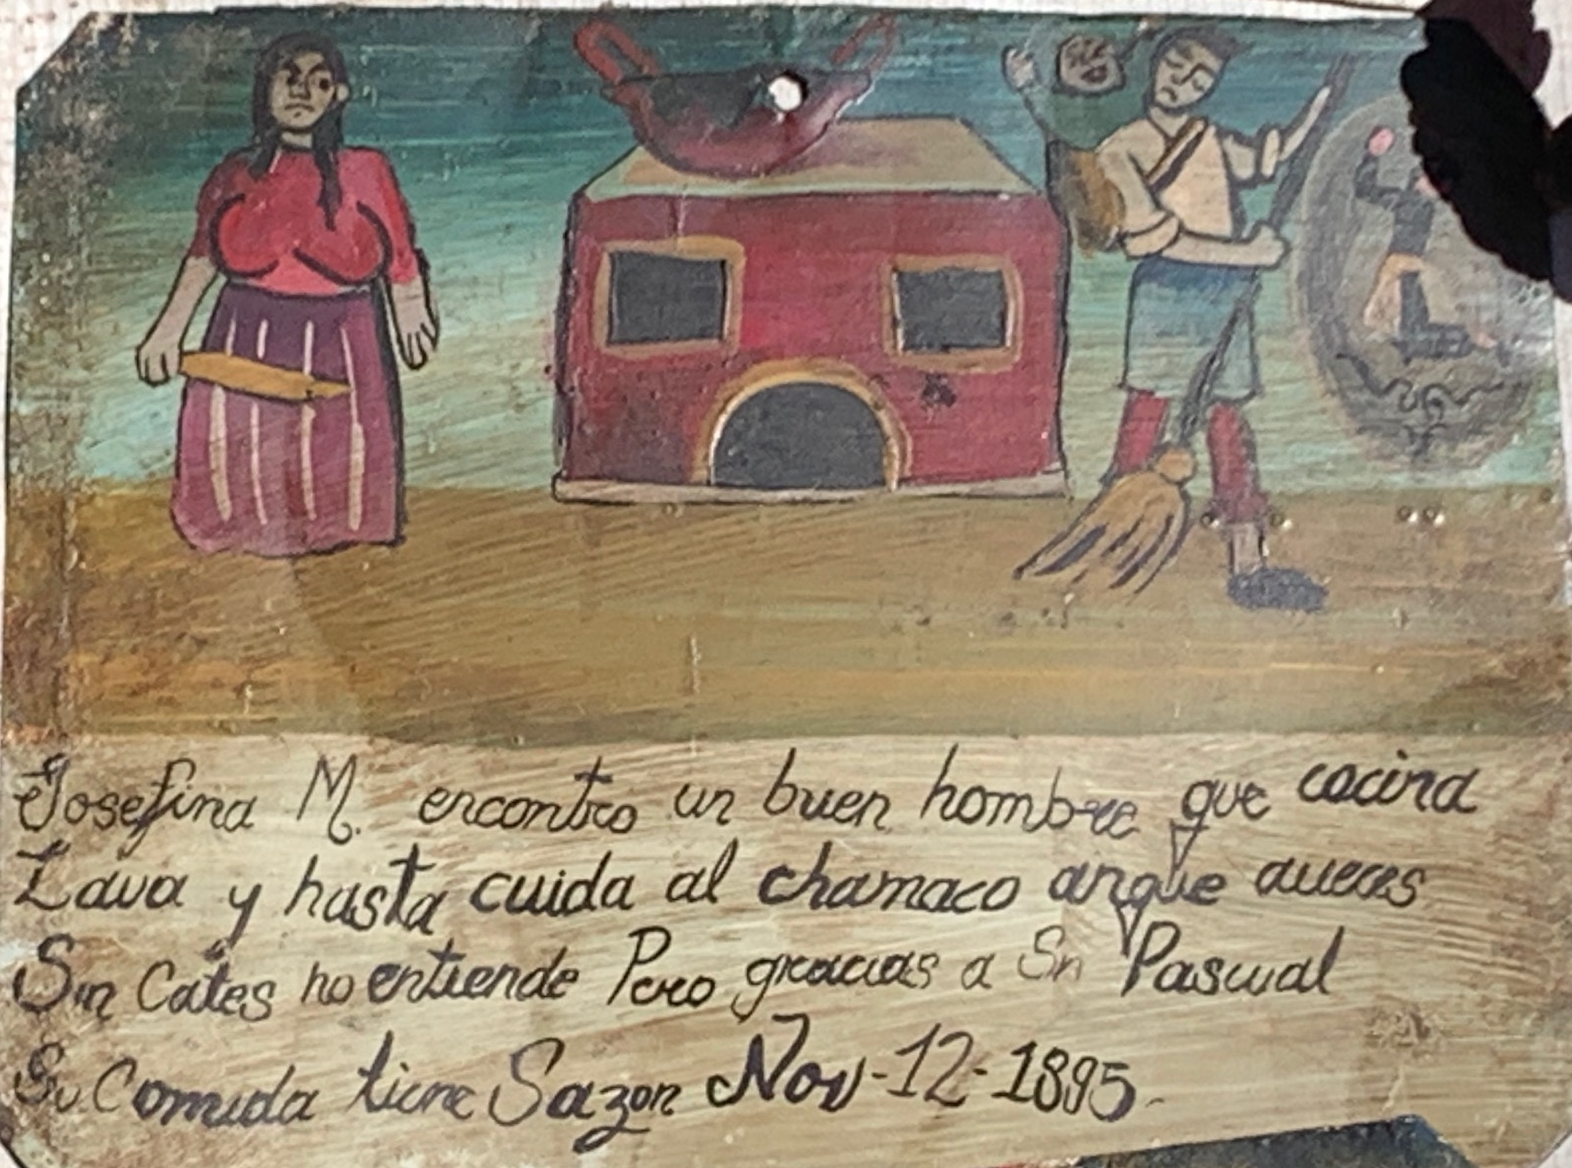 Josefina M. encontro un buen hombre que cocina
Lava y hasta cuida al chamaco anque aueces
Sin Cates no entiende Pero gracias a Sn Pascual
Su Comida tiene Sazon Nov-12-1895